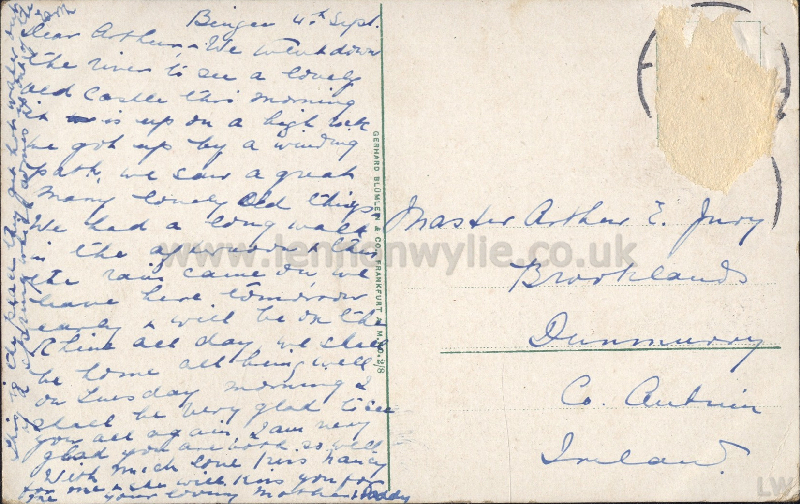 Bingen 4th Sept.
Dear Arthur - We went down
the river to see a lovely
old castle this morning
it is up on a high rock
we got up by a winding
path, we saw a great
many lovely old things
We had a long walk
in the afternoon then
the rain came on we
leave here tomorrow
early & will be on the
Rhine all day, we shall
be home all being well
on Tuesday morning I
shall be very glad to see
you all again, I am very
glad you are both so well
With much love Kiss Nancy
for me & she will kiss you for
me your loving mother & Daddy
this is
GERHARD BLÜMLEIN & CO., FRANKFURT A. M.
Master Arthur E. Jury
Brooklands
Dunmurry
Co. Antrim
Ireland.
www.lennonwylie.co.uk
LW